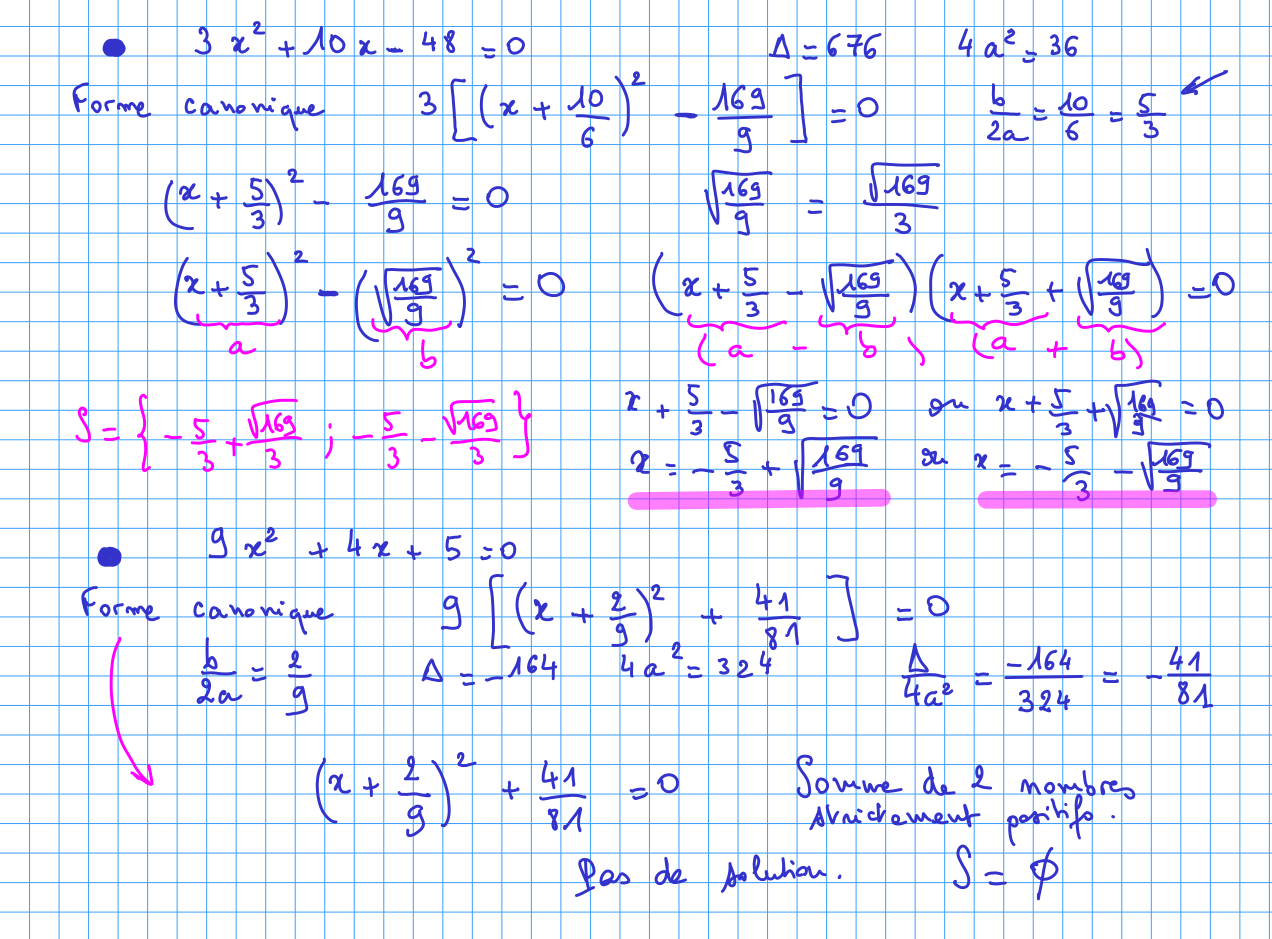 3x² + 10x - 48 = 0    Δ = 676    4a² = 36
Forme canonique    3[(x + 10/6)² - 169/9] = 0    b/2a = 10/6 = 5/3
(x + 5/3)² - 169/9 = 0    √(169/9) = √169/3
(x + 5/3)² - (√(169/9))² = 0    (x + 5/3 - √(169/9))(x + 5/3 + √(169/9)) = 0
a    b    (a - b)    (a + b)
S = {-5/3 + √169/3 ; -5/3 - √169/3}
x + 5/3 - √(169/9) = 0    ou    x + 5/3 + √(169/9) = 0
x = -5/3 + √(169/9)    ou    x = -5/3 - √(169/9)
9x² + 4x + 5 = 0
Forme canonique    9[(x + 2/9)² + 41/81] = 0
b/2a = 2/9    Δ = -164    4a² = 324    Δ/4a² = -164/324 = -41/81
(x + 2/9)² + 41/81 = 0    Somme de 2 nombres
strictement positifs.
Pas de solution.    S = ϕ